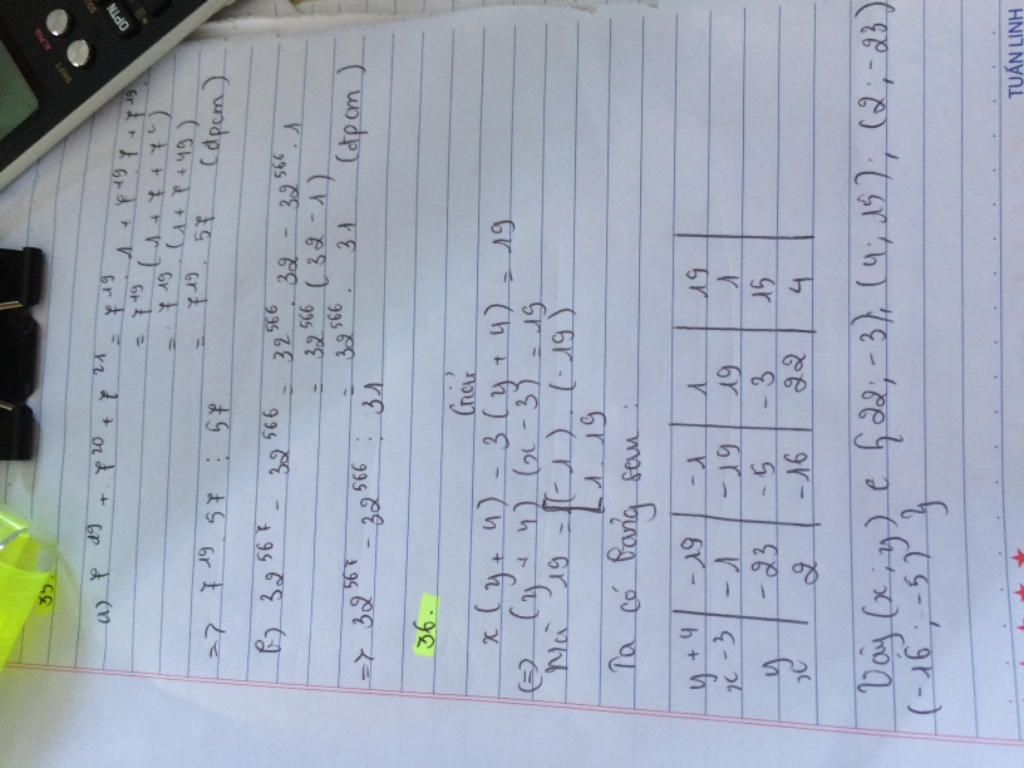 35.
a) 7^19 + 7^20 + 7^21 = 7^19 . 1 + 7^19 . 7 + 7^19 .
= 7^19 (1 + 7 + 7^2)
= 7^19 . (1 + 7 + 49)
= 7^19 . 57 (đpcm)
=> 7^19 . 57 ⋮ 57
b) 32^567 - 32^566 = 32^566 . 32 - 32^566 . 1
= 32^566 (32 - 1)
= 32^566 . 31 (đpcm)
=> 32^567 - 32^566 ⋮ 31
36.
x (y + 4) - 3 (y + 4) = 19
(=) (y + 4) (x - 3) = 19
19 = [(-1) . (-19)
[1 . 19
Ta có bảng sau:
y + 4 | -19 | -1 | 1 | 19
x - 3 | -1 | -19 | 19 | 1
y | -23 | -5 | -3 | 15
x | 2 | -16 | 22 | 4
Vậy (x ; y) ∈ { 22 ; -3), (4, 15) ; (2 ; -23)
(-16 ; -5) }
TUẤN LINH
OPTN